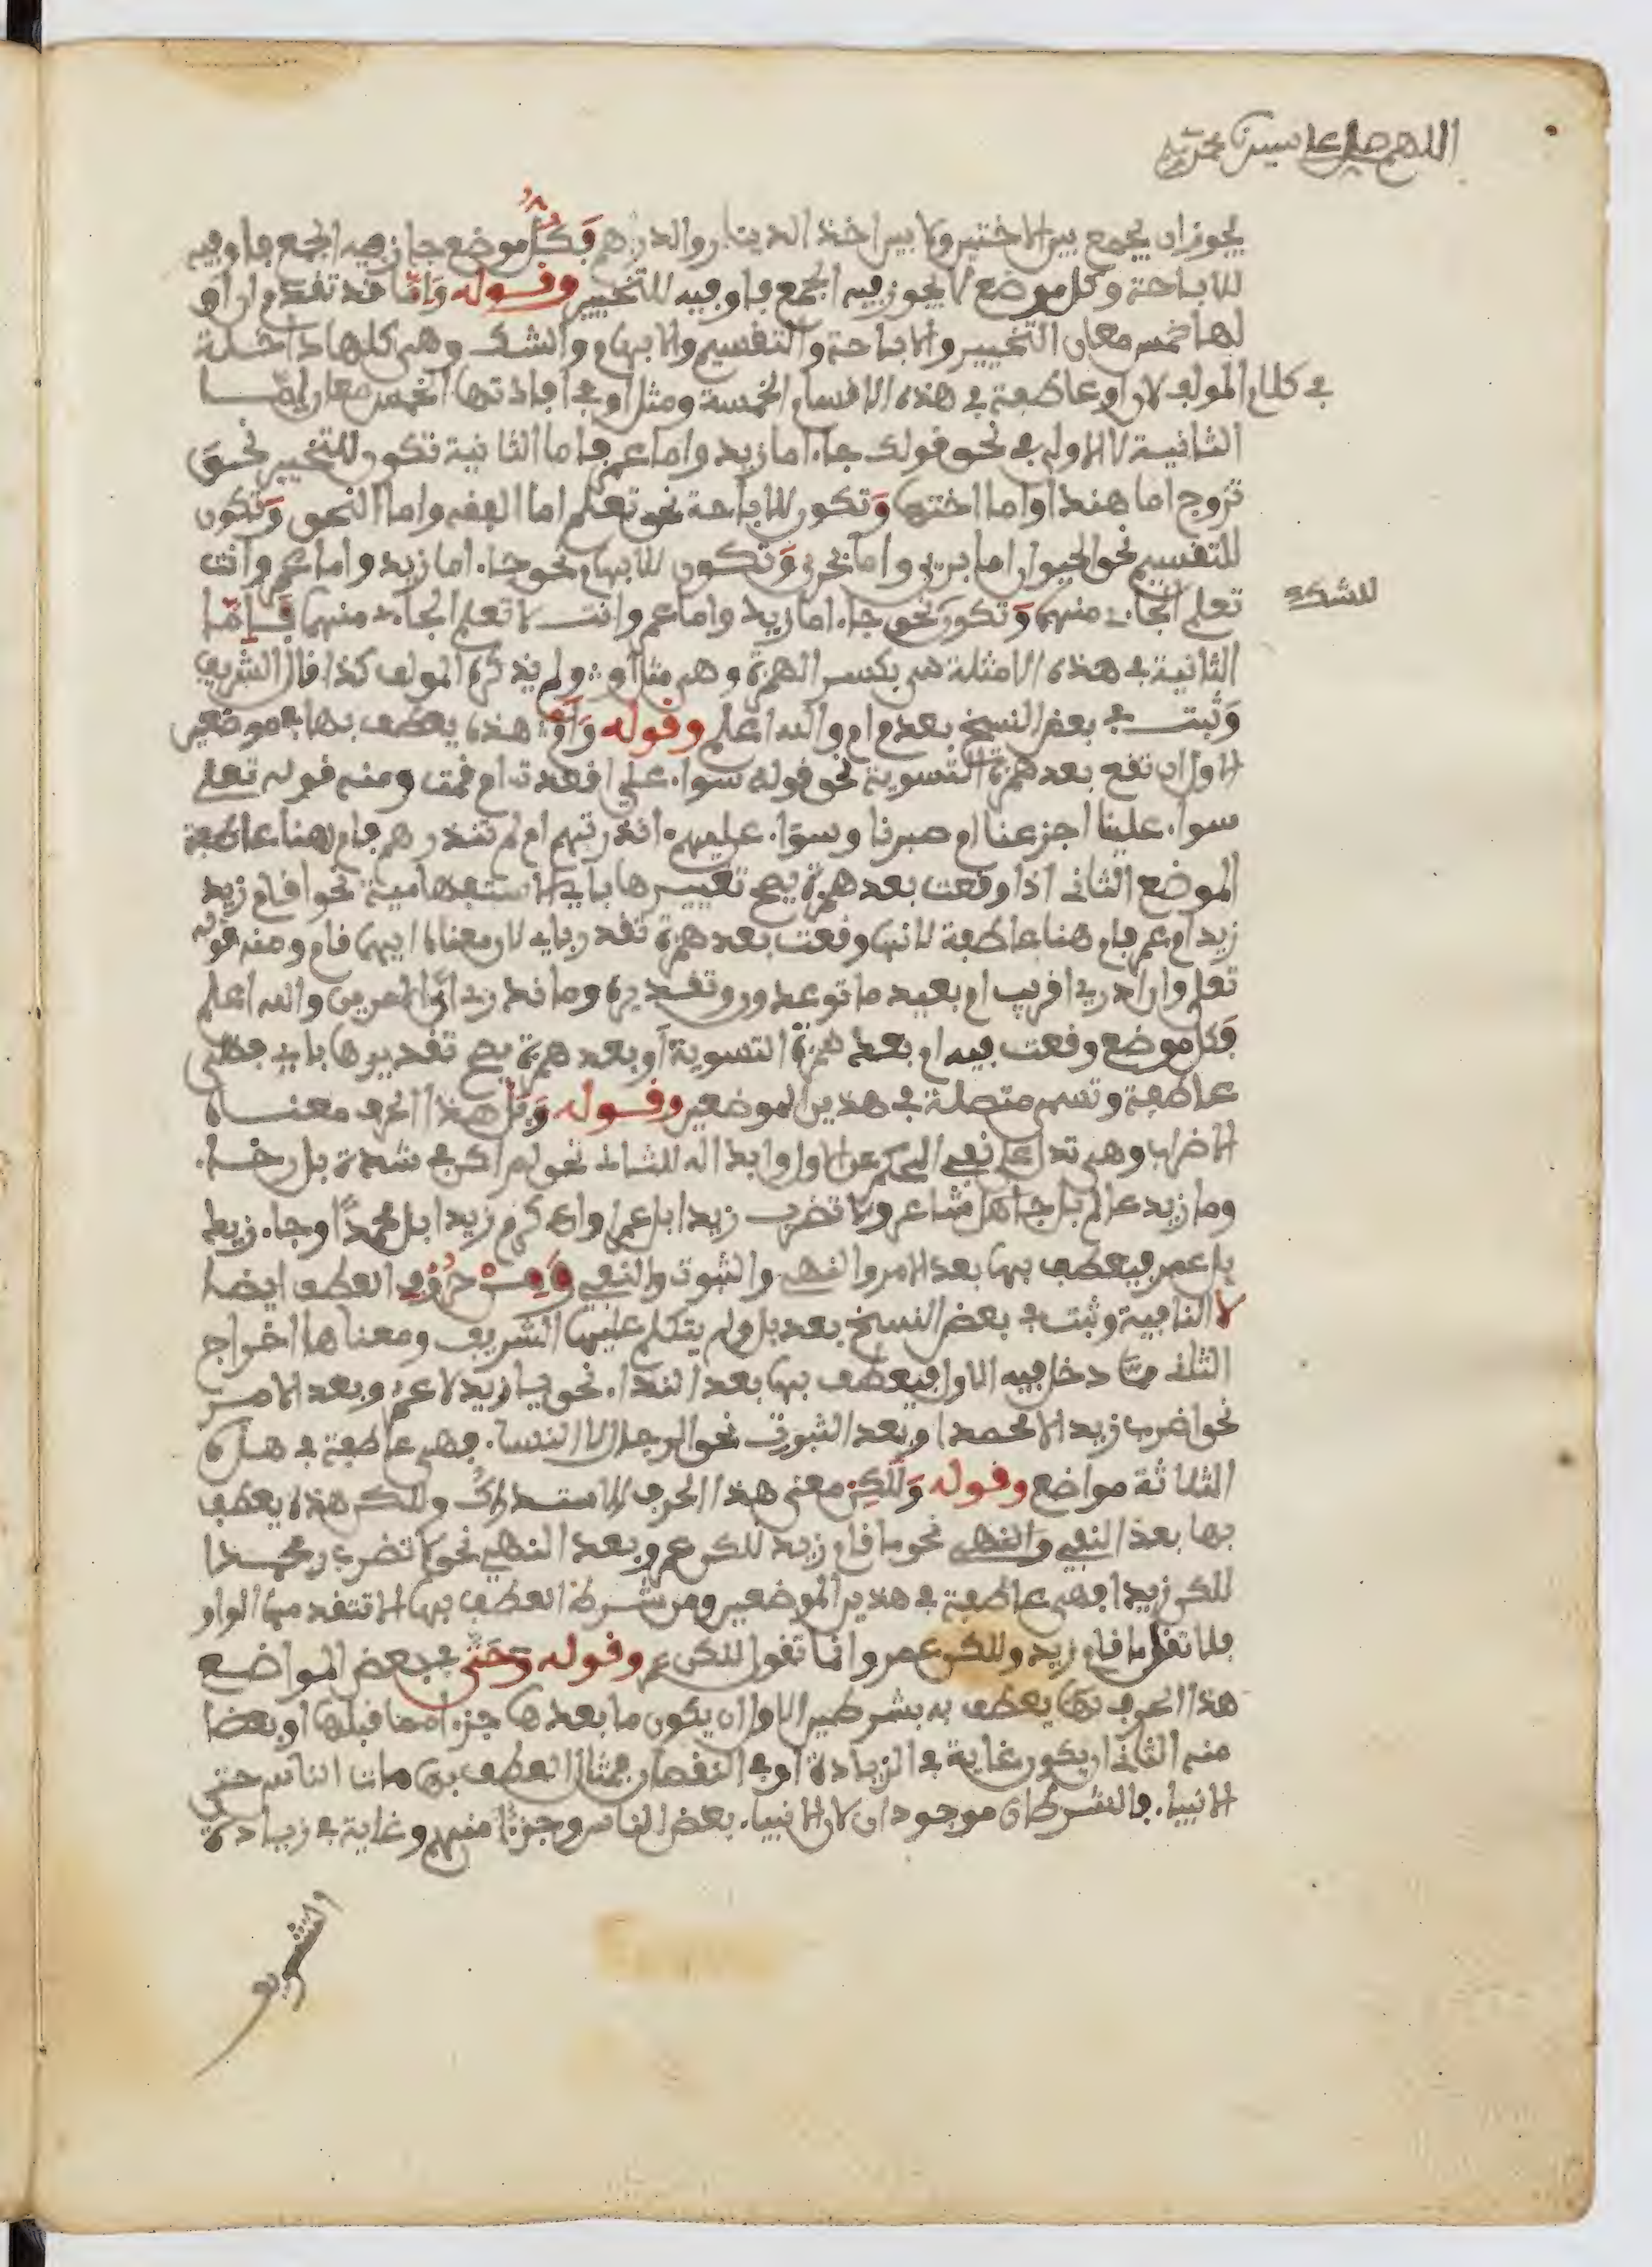 اللهم صل على سيدنا محمد
يجوز ان يجمع بين الاختين ولا بين اخذ الدينار والدرهم فكل موضع جاز فيه الجمع فاو فيه
للاباحة وكل موضع لا يجوز فيه الجمع فاو فيه للتخيير وقوله وَإمّا قد تقدم ان او
لها خمس معان التخيير والاباحة والتقسيم والابهام والشك وهي كلها داخلة
في كلام المولف لان او عاطفة في هذه الاقسام الخمسة ومثل او في افادتها الخمس معان إمّا
الثانية لا الاولى في نحو قولك جاء اما زيد واما عمر فاما الثانية تكون للتخيير نحو
تزوج اما هندا واما اختها وَتكون للاباحة نحو تعلم اما الفقه واما النحو وَتكون
للتقسيم نحو الحيوان اما بري واما بحري وَتكون للابهام نحو جاء اما زيد واما عمر وانت
تعلم الجاءي منهما وَتكون نحو جاء اما زيد واما عمر وانت لا تعلم الجاءي منهما فَإمّا
للشك
الثانية في هذه الامثلة هي بكسر الهمزة وهي مثل او ولم يذكره المولف كذا قال الشريف
وَثبت في بعض النسخ بعد م ام والله اعلم وقوله وَأمْ هذه يعطف بها في موضعين
الاول ان تقع بعد همزة التسوية نحو قوله سواء علي اقعدت ام قمت ومنه قوله تعلى
سواء علينا اجزعنا ام صبرنا وسواء عليهم ءانذرتهم ام لم تنذرهم فام هنا عاطفة
الموضع الثاني اذا وقعت بعد همزة يصح تعبيرها باي الاستفهامية نحو اقام زيد
زيد ام عمر فام هنا عاطفة لانها وقعت بعد همزة تقدر باي لان معناه ايهما قام ومنه قوله
تعلى وان ادري اقريب ام بعيد ما توعدون وتقديره وما ندري ايّ الامرين والله اعلم
فكل موضع وقعت فيه ام بعد همزة التسوية او بعد همزة يصح تقديرها باي فهي
عاطفة وتسمى متصلة في هذين الموضعين وقوله وَبَلْ هذا الحرف معناه
الاضراب وهي تدل على نفي الحكم عن الاول وابداله للثاني نحو لم اكن في شدة بل رخاء
وما زيد عالم بل جاهل شاعر ولا تضرب زيدا بل عمرا واكرم زيدا بل محمدًا وجاء زيد
بل عمر فيعطف بها بعد الامر والنهي والثبوت والنفي وَمِنْ حُرُوفِ العطف ايضا
لا النافية وثبت في بعض النسخ بعد بل ولم يتكلم عليها الشريف ومعناها اخراج
الثاني ممّا دخل فيه الاول فيعطف بها بعد النداء نحو يا زيد لا عمر وبعد الامر
نحو اضرب زيد لا محمدا وبعد الثبوت نحو الرجال لا النساء فهي عاطفة في هذه
الثلاثة مواضع وقوله وَلَكِنْ معنى هذا الحرف الاستدراك ولكن هذه يعطف
بها بعد النفي والنهي نحو ما قام زيد لكن عمر وبعد النهي نحو لا تضرب محمدا
لكن زيدا فهي عاطفة في هذين الموضعين ومن شرط العطف بها الا تتقدمها الواو
فلا تقل ما قام زيد ولكن عمر وانما تقول لكن عمر وقوله وَحَتَّى في بعض المواضع
هذا الحرف يعطف به بشرطين الاول ان يكون ما بعدها جزءا مما قبلها او بعضا
منه الثاني ان يكون غاية في الزيادة او في النقصان فمثال العطف بها مات الناس حتى
الانبياء فالشرطان موجودان لان الانبياء بعض الناس وجزءا منهم وغاية في زيادة
الشريف